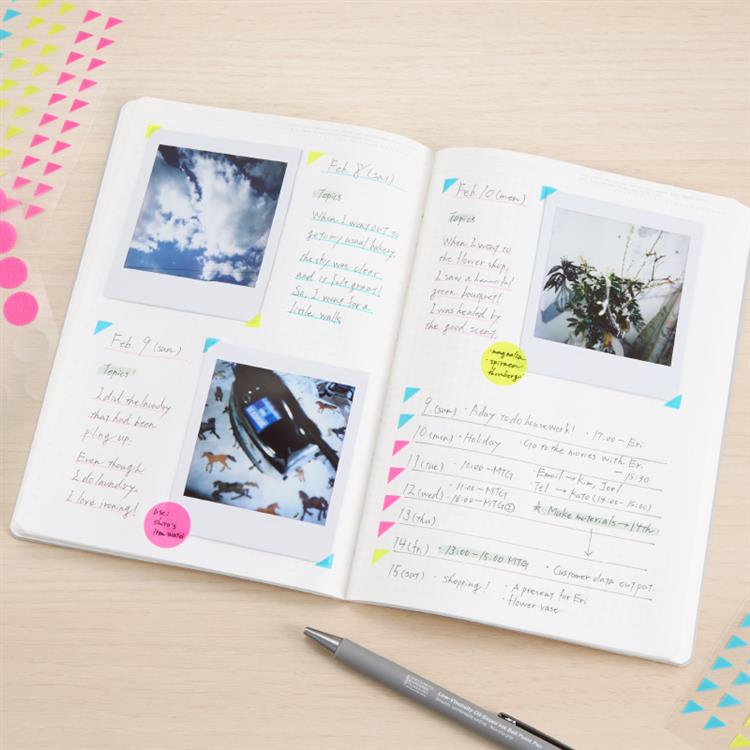 Feb 8 (sat)
Topics
When I went out to
get my usual bakery,
the sky was clear
and it felt great!
So, I went for a
little walk.
Feb 9 (sun)
Topics
I did the laundry
that had been
piling up.
Even though
I do laundry,
I love ironing!
Feb 10 (mon)
Topics
When I went to
the flower shop,
I saw a beautiful
green bouquet!
I was healed by
the good scent.
・magnolia
・spiraea
thunbergii
9 (sun) ・A day to do housework! ・17:00 - Eri
10 (mon) ・Holiday ・Go to the movies with Eri
11 (tue) ・10:00 - MTG ・Email → Kim, Joe! - 15:30
12 (wed) ・11:00 - MTG ・Tel → Kato (14:00 - 15:00)
・16:00 - MTG② ★ Make materials → 14th
13 (thu)
14 (fri) ・13:00 - 15:00 MTG ・Customer data output
15 (sat) ・shopping! ・A present for Eri
・flower vase
Low-Viscosity Oil-Based Ink Ball Point Pen